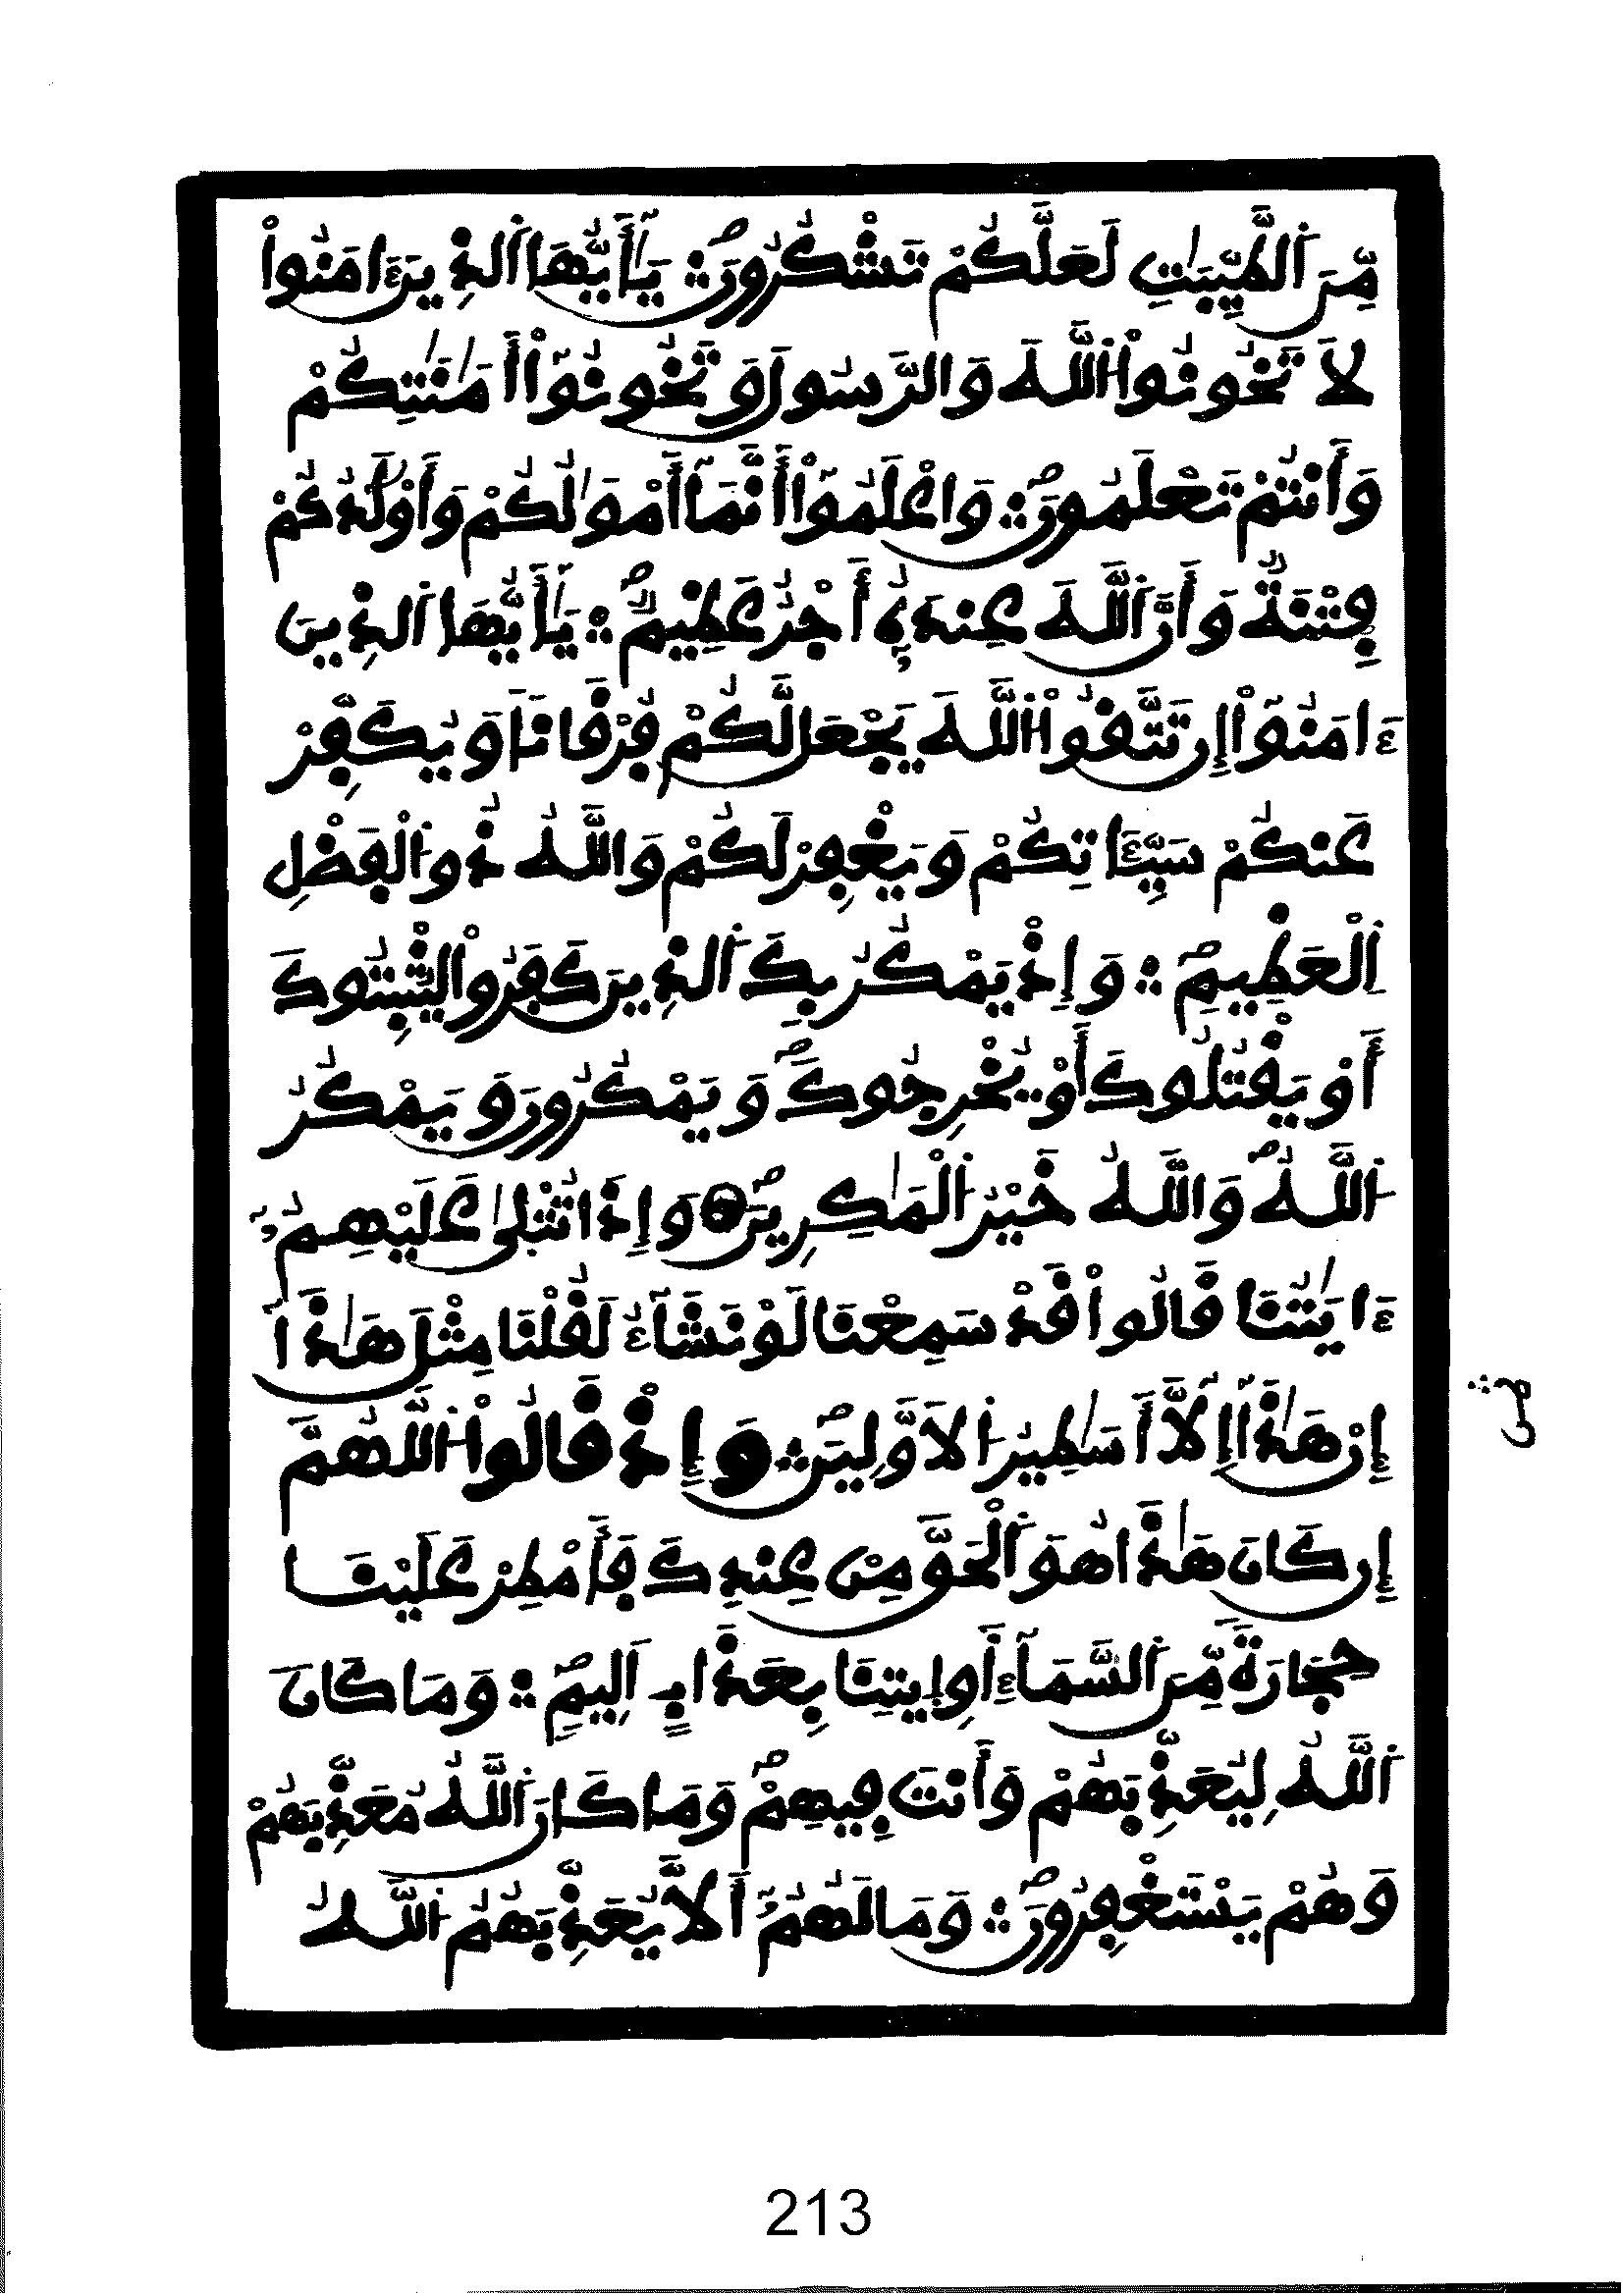 مِّنَ اَ۬لطَّيِّبَٰتِ لَعَلَّكُمْ تَشْكُرُونَۖ ۞ يَٰٓأَيُّهَا اَ۬لذِينَ ءَامَنُواْ
لَا تَخُونُواْ اُ۬للَّهَ وَالرَّسُولَ وَتَخُونُوٓاْ أَمَٰنَٰتِكُمْ
وَأَنتُمْ تَعْلَمُونَۖ ۞ وَاعْلَمُوٓاْ أَنَّمَآ أَمْوَٰلُكُمْ وَأَوْلَٰدُكُمْ
فِتْنَةٞ وَأَنَّ اَ۬للَّهَ عِندَهُۥٓ أَجْرٌ عَظِيمٞۖ ۞ يَٰٓأَيُّهَا اَ۬لذِينَ
ءَامَنُوٓاْ إِن تَتَّقُواْ اُ۬للَّهَ يَجْعَل لَّكُمْ فُرْقَاناٗ وَيُكَفِّرْ
عَنكُمْ سَيِّـَٔاتِكُمْ وَيَغْفِرْ لَكُمْ وَاللَّهُ ذُو اُ۬لْفَضْلِ
اِ۬لْعَظِيمِۖ ۞ وَإِذْ يَمْكُرُ بِكَ اَ۬لذِينَ كَفَرُواْ لِيُثْبِتُوكَ
أَوْ يَقْتُلُوكَ أَوْ يُخْرِجُوكَۖ وَيَمْكُرُونَ وَيَمْكُرُ
اُ۬للَّهُۖ وَاللَّهُ خَيْرُ اُ۬لْمَٰكِرِينَۖ ۞ وَإِذَا تُتْلَىٰ عَلَيْهِمُۥٓ
ءَايَٰتُنَا قَالُواْ قَدْ سَمِعْنَا لَوْ نَشَآءُ لَقُلْنَا مِثْلَ هَٰذَآ
إِنْ هَٰذَآ إِلَّآ أَسَٰطِيرُ اُ۬لَاوَّلِينَۖ ۞ وَإِذْ قَالُواْ اُ۬للَّهُمَّ
إِن كَانَ هَٰذَا هُوَ اَ۬لْحَقَّ مِنْ عِندِكَ فَأَمْطِرْ عَلَيْنَا
حِجَارَةٗ مِّنَ اَ۬لسَّمَآءِ أَوِ اِ۪يتِنَا بِعَذَابٍ اَلِيمٖۖ ۞ وَمَا كَانَ
اَ۬للَّهُ لِيُعَذِّبَهُمْ وَأَنتَ فِيهِمْۖ وَمَا كَانَ اَ۬للَّهُ مُعَذِّبَهُمْ
وَهُمْ يَسْتَغْفِرُونَۖ ۞ وَمَا لَهُمُۥٓ أَلَّا يُعَذِّبَهُمُ اُ۬للَّهُ
213